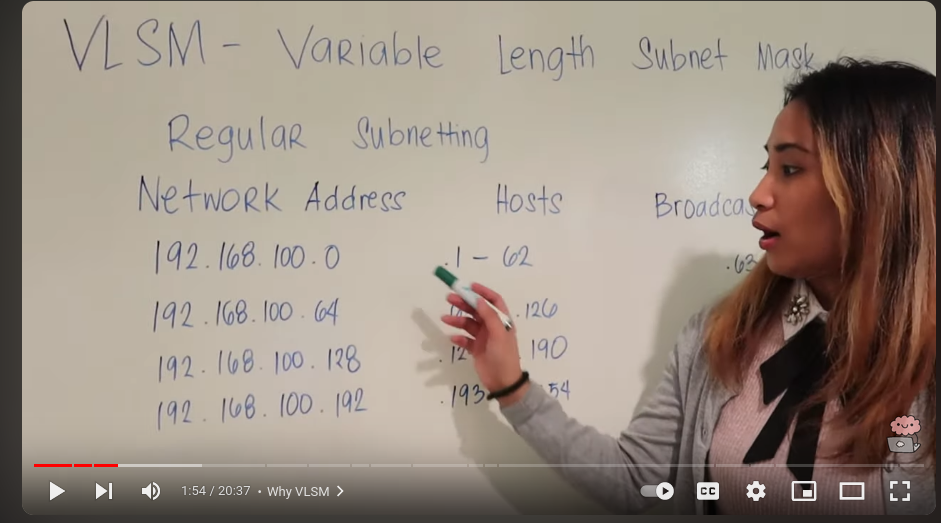 VLSM - Variable Length Subnet Mask
Regular Subnetting
Network Address Hosts
192.168.100.0 .1 - 62 .63
192.168.100.64 .126
192.168.100.128 .190
192.168.100.192 .193
1:54 / 20:37 • Why VLSM
CC